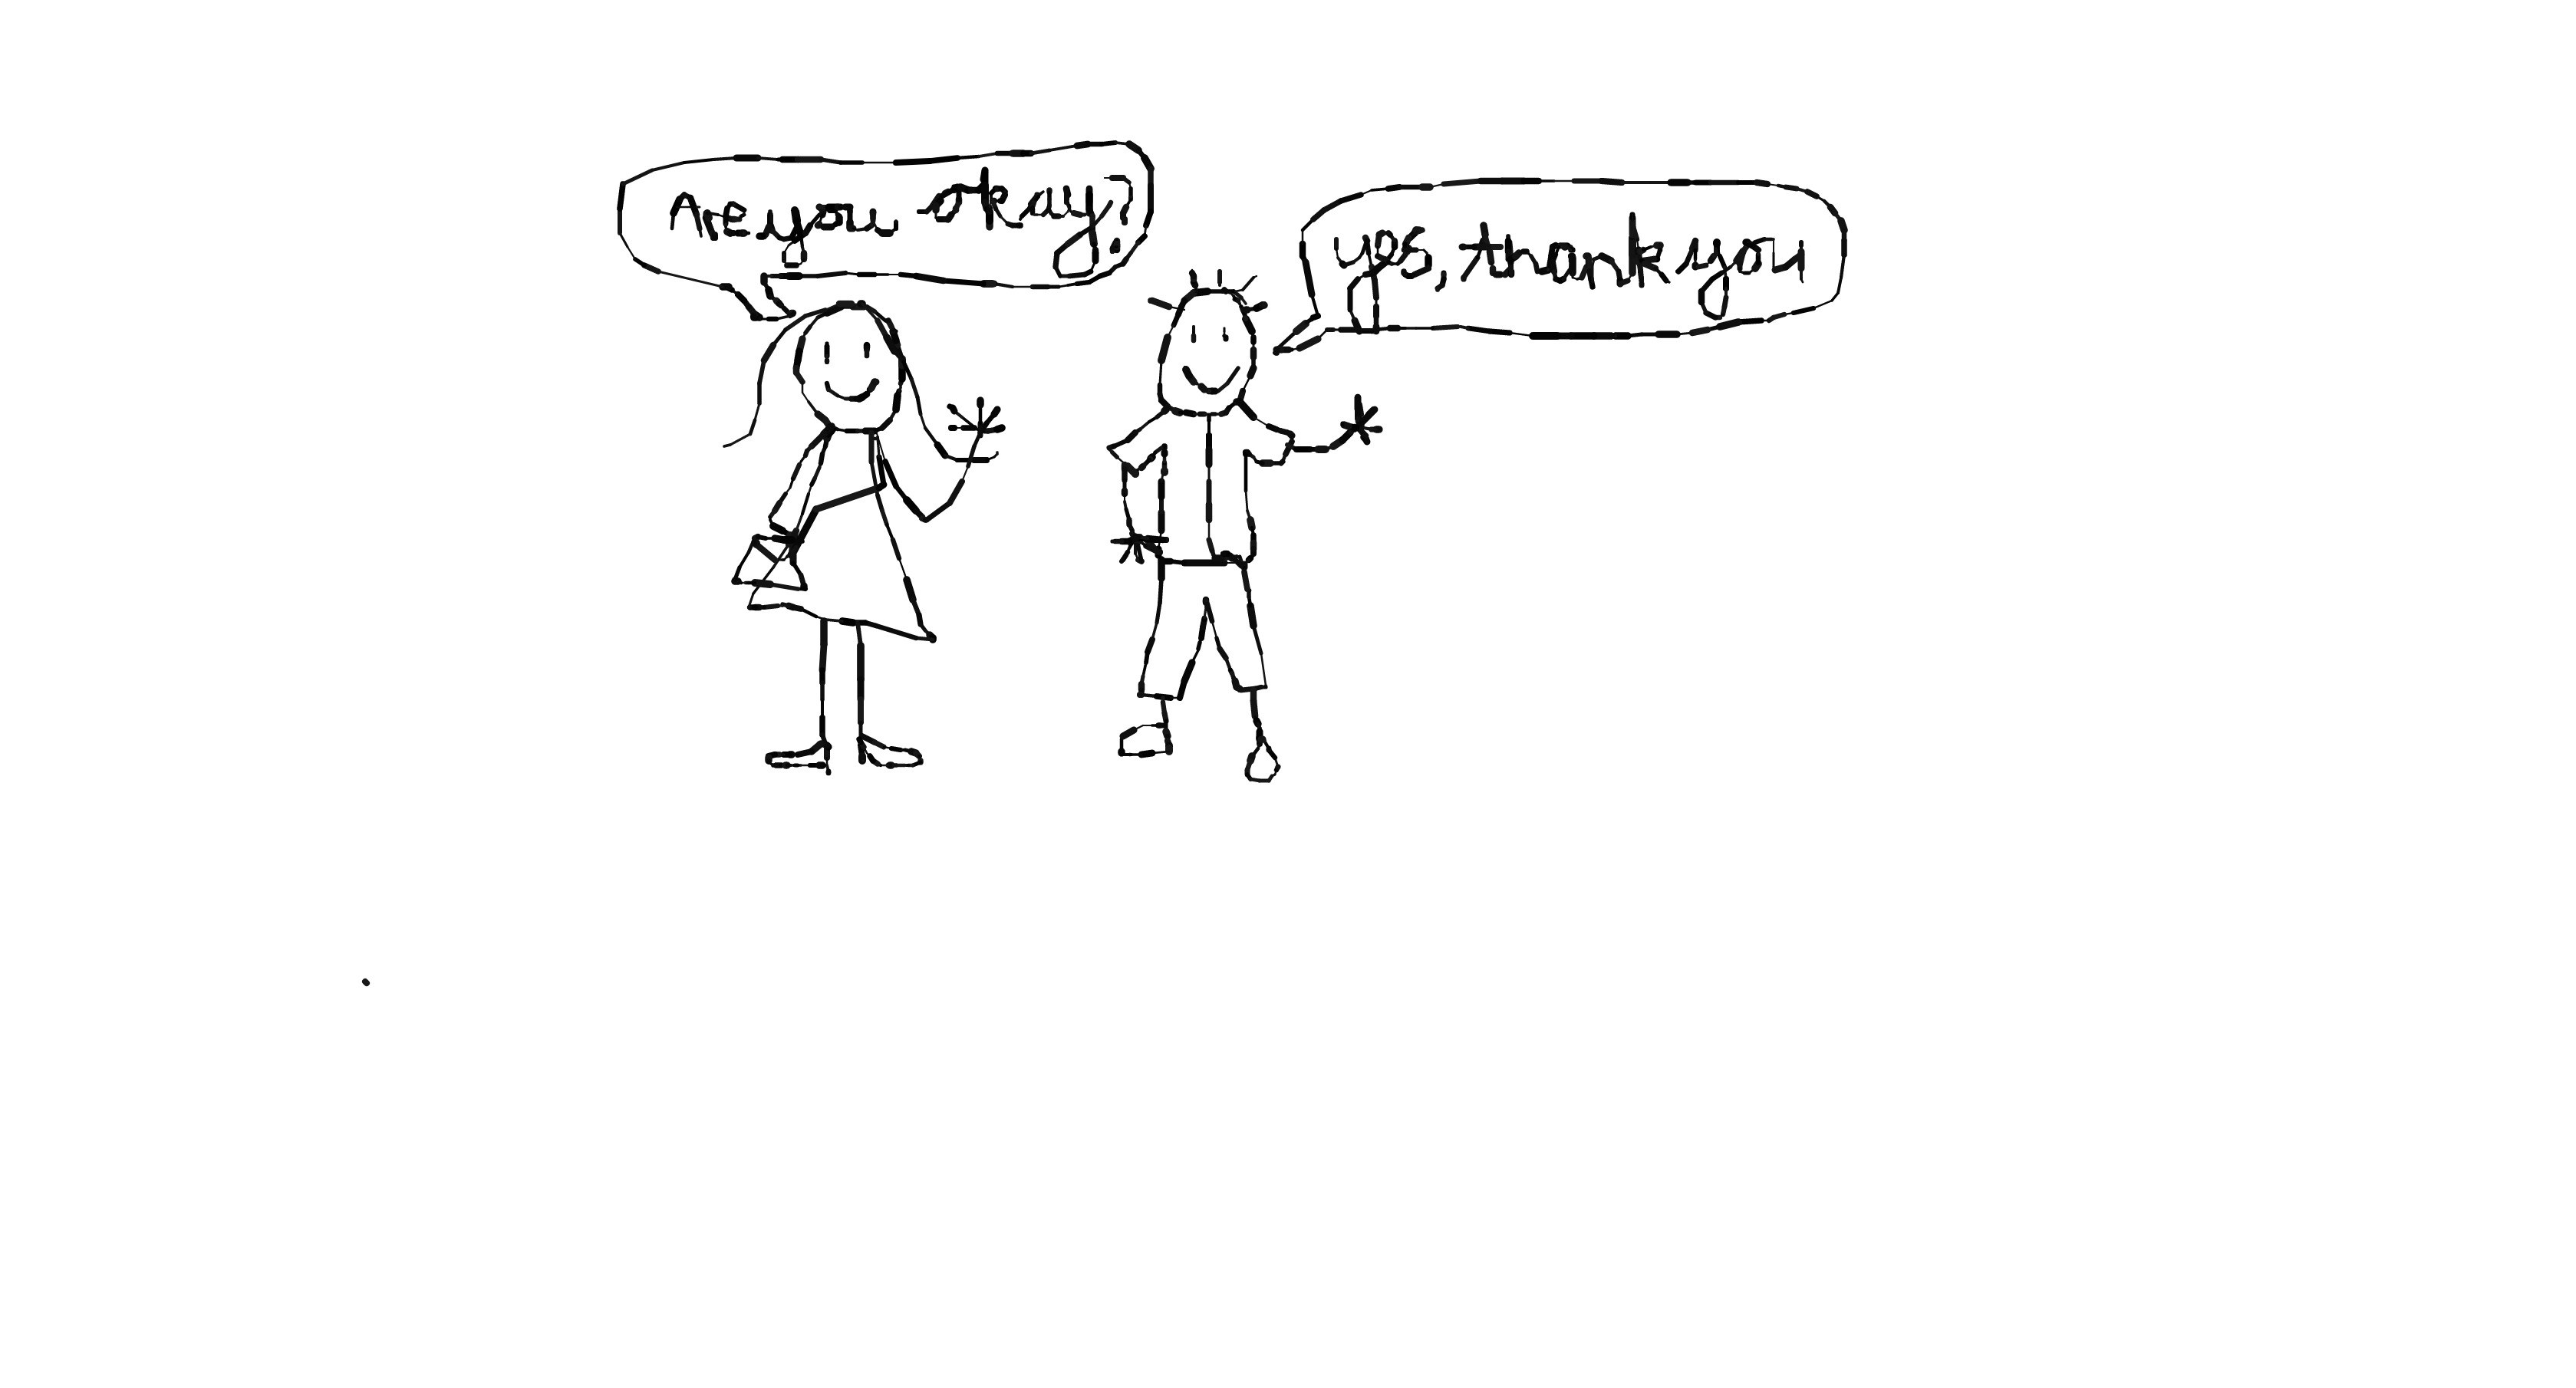 Are you okay?
yes, thank you